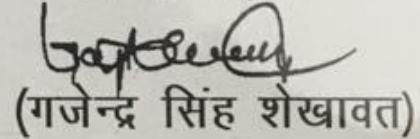 (गजेन्द्र सिंह शेखावत)